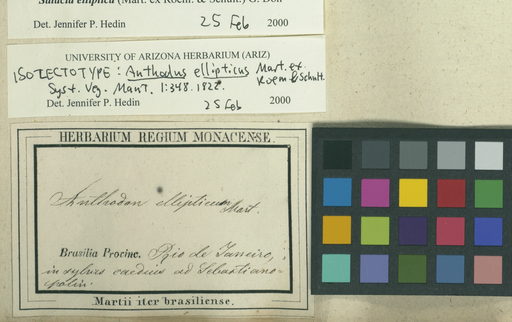 Salacia elliptica (Mart. ex Roem. & Schult.) G. Don
Det. Jennifer P. Hedin 25 Feb 2000
UNIVERSITY OF ARIZONA HERBARIUM (ARIZ)
ISOLECTOTYPE: Anthodus ellipticus Mart. ex
Roem & Schult.
Syst. Veg. Mant. 1:348. 1822.
Det. Jennifer P. Hedin 25 Feb 2000
HERBARIUM REGIUM MONACENSE.
Anthodon ellipticum Mart.
Brasilia Provinc. Rio de Janeiro,
in sylvis caeduis ad Sebastiano-
polin
Martii iter brasiliense.